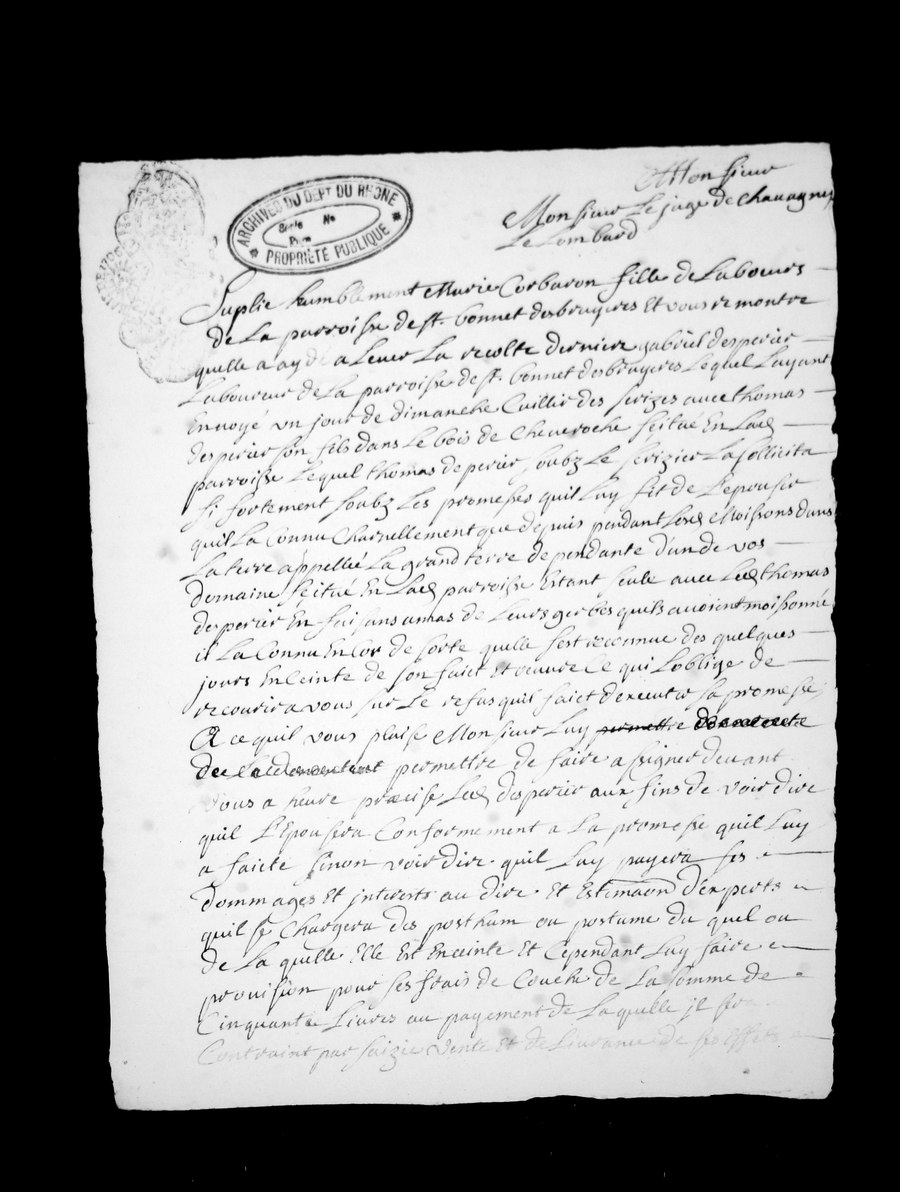 ARCHIVES DU DEPT DU RHONE
Serie No
PROPRIÉTÉ PUBLIQUE
Monsieur
Monsieur Le juge de Chavagny
Le Lombard
Suplie humblement Marie Corbaron fille de Laboeurs
de La parroisse de st. bonnet desbruyeres Et vous remontre
quelle a aydé a Lever La recolte derniere gabriel desperier
Laboureur de La parroisse de st. bonnet desbruyeres Lequel Layant
Envoyé un jour de dimanche Cuillir des serizes avec thomas
desperier son fils dans Le bois de Cheveroche scitué En Lad
parroisse Lequel thomas deperier soubz Le serizier La sollicita
si fortement soubz Les promesses quil Luy fit de Lepouser
quil La Connu Charnellement que depuis pendant Lesd Moissons dans
La terre appellée La grand terre dependante d'un de vos
domaine scitué En Lad parroisse Estant seule avec Led thomas
desperier En faisans amas de Leurs gerbes quils avoient moissonné
il La Connu Encor de sorte quelle sest reconnue des quelques
jours Enceinte de son faict Et oeuvre Ce qui Loblige de
recourir a vous sur Le refus quil faict dexecuter sa promesse
A ce quil vous plaise Monsieur Luy permettre
permettre de faire assigner devant
vous a heure precise Led desperier aux fins de voir dire
quil L'Epousera Conformement a La promesse quil Luy
a faicte sinon voir dire quil Luy payera ses
dommages Et interests au dire Et Estimaon d'experts
quil se Chargera des posthum ou postume du quel ou
de La quelle Elle Est Enceinte Et Cependant Luy faire
provision pour ses frais de Couche de La somme de
Cinquante Livres au payement de Laquelle il sera
Contraint par saizie vente Et deLivrance de ses effets